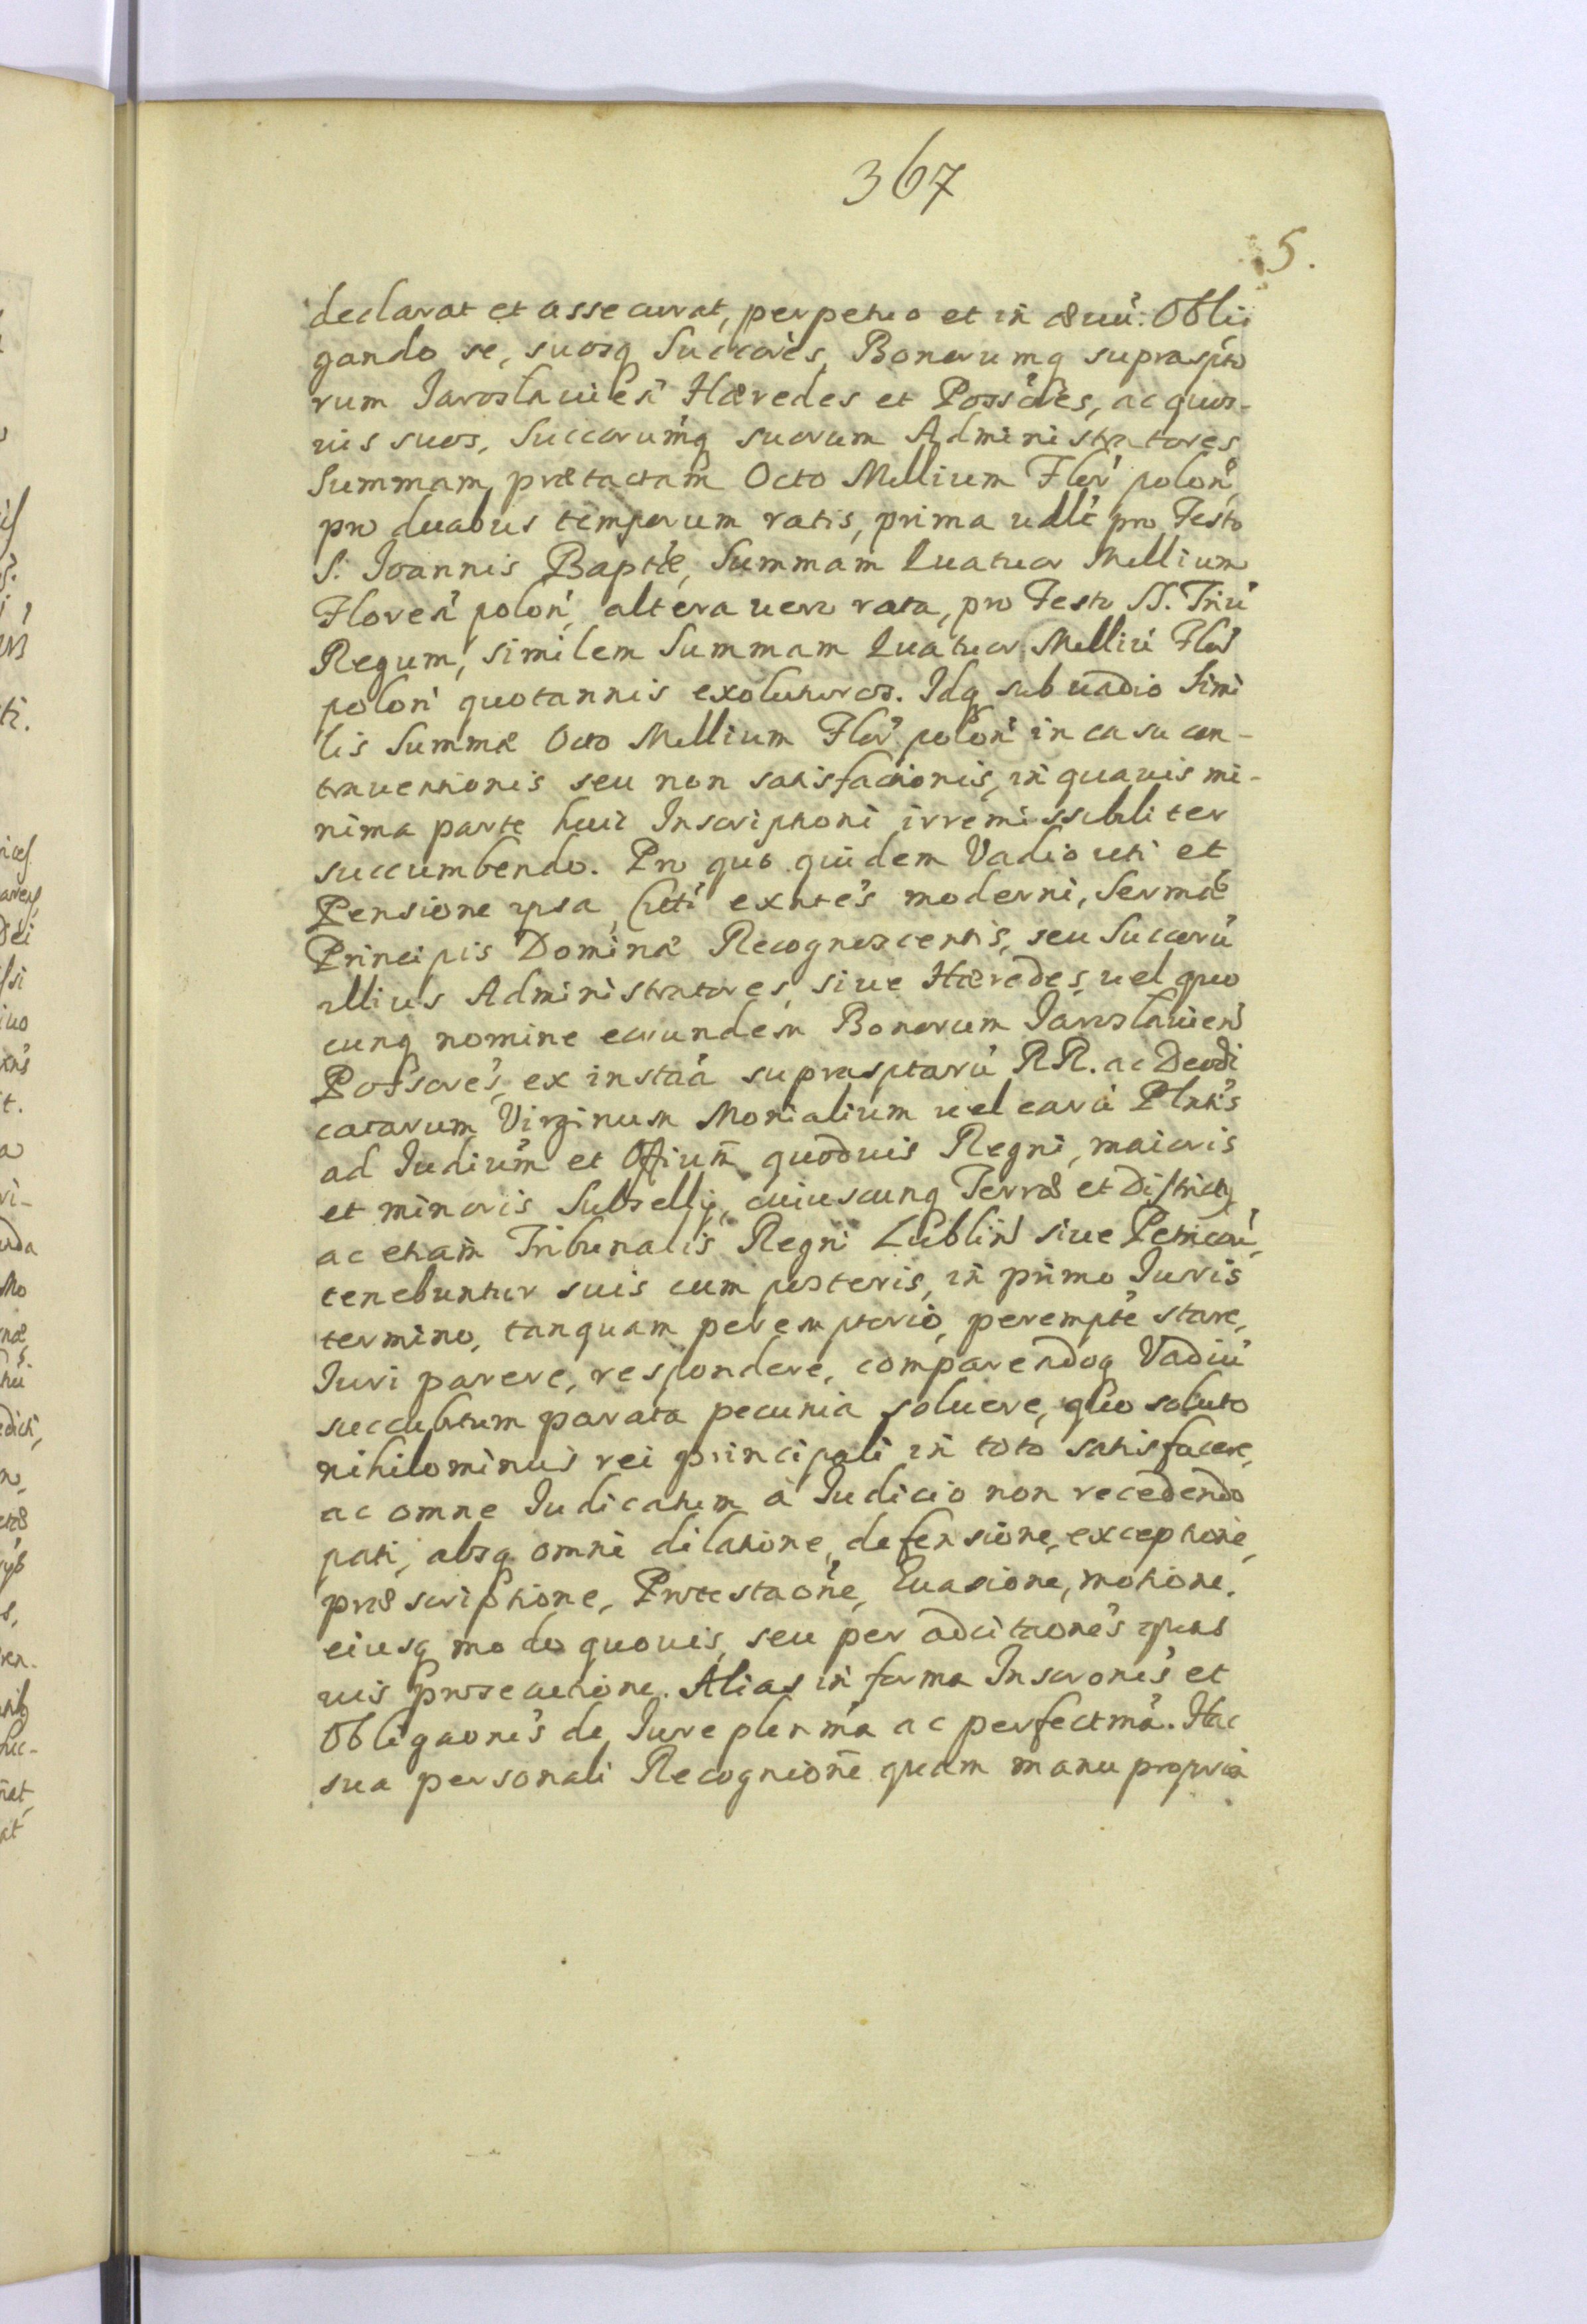 367
5.
declarat et assecurat, perpetuo et in æuū. Obli
gando se, suosq Succores, Bonorumq suprasptо
rum Jaroslauien̄ Hæredes et Possores, ac quos-
uis suos, Succorumq suorum Administratores
Summam prætactam Octo Millium Flor̄ polon̄,
pro duabus temporum ratis, prima udlt pro Festo
S. Joannis Baptæ, Summam Quatuor Millium
Floren̄ polon̄, altera uero rata, pro Festo SS. Triū
Regum, similem Summam Quatuor Milliū Flor̄
polon̄ quotannis exoluturos. Idq sub uadio Simi
lis Summæ Octo Millium Flor̄ polon̄ in casu con-
trauentionis seu non satisfactionis, in quauis mi-
nima parte huic Inscriptioni irremissibiliter
succumbendo. Pro quo quidem Vadio uti et
Pensione ipsa, exntes moderni, Sermæ
Principis Dominæ Recognoscentis, seu Succorū
illius Administratores, siue Hæredes, uel quo
cunq nomine eorundem Bonorum Jaroslauien̄
Possores, ex instāa suprasptarū RR. ac Deodi
catarum Virginum Monialium uel earū Plntis
ad Judiūm et Offiūm quoduis Regni, maioris
et minoris Subsellij, cuiuscunq Terræ et Districtq
ac etiam Tribunalis Regni Lublin̄ siue Petricou̅,
tenebuntur suis cum posteris, in primo Juris
termino, tanquam peremptorio, perempte stare,
Juri parere, respondere, comparendoq Vadiū
succubitum parata pecunia soluere, quo soluto
nihilominus rei principali in toto satisfacere,
ac omne Judicatum à Judicio non recedendo
pati, absq omni dilatione, defensione, exceptione,
præscriptione, Protestaōne, Euasione, motione,
eiusq modo quouis, seu per adcitaones quas
uis prosecutione. Alias in forma Inscrones et
Obligaones de Jure plenma ac perfectma. Hac
sua personali Recognione quam manu propria